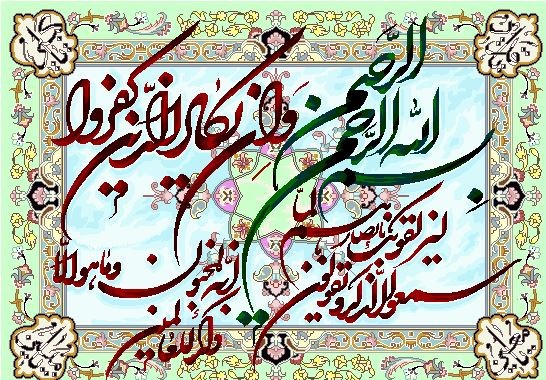 بسم الله الرحمن الرحيم
وإن يكاد الذين كفروا
ليزلقونك بأبصارهم لما
سمعوا الذكر ويقولون
إنه لمجنون وما هو إلا
ذكر للعالمين